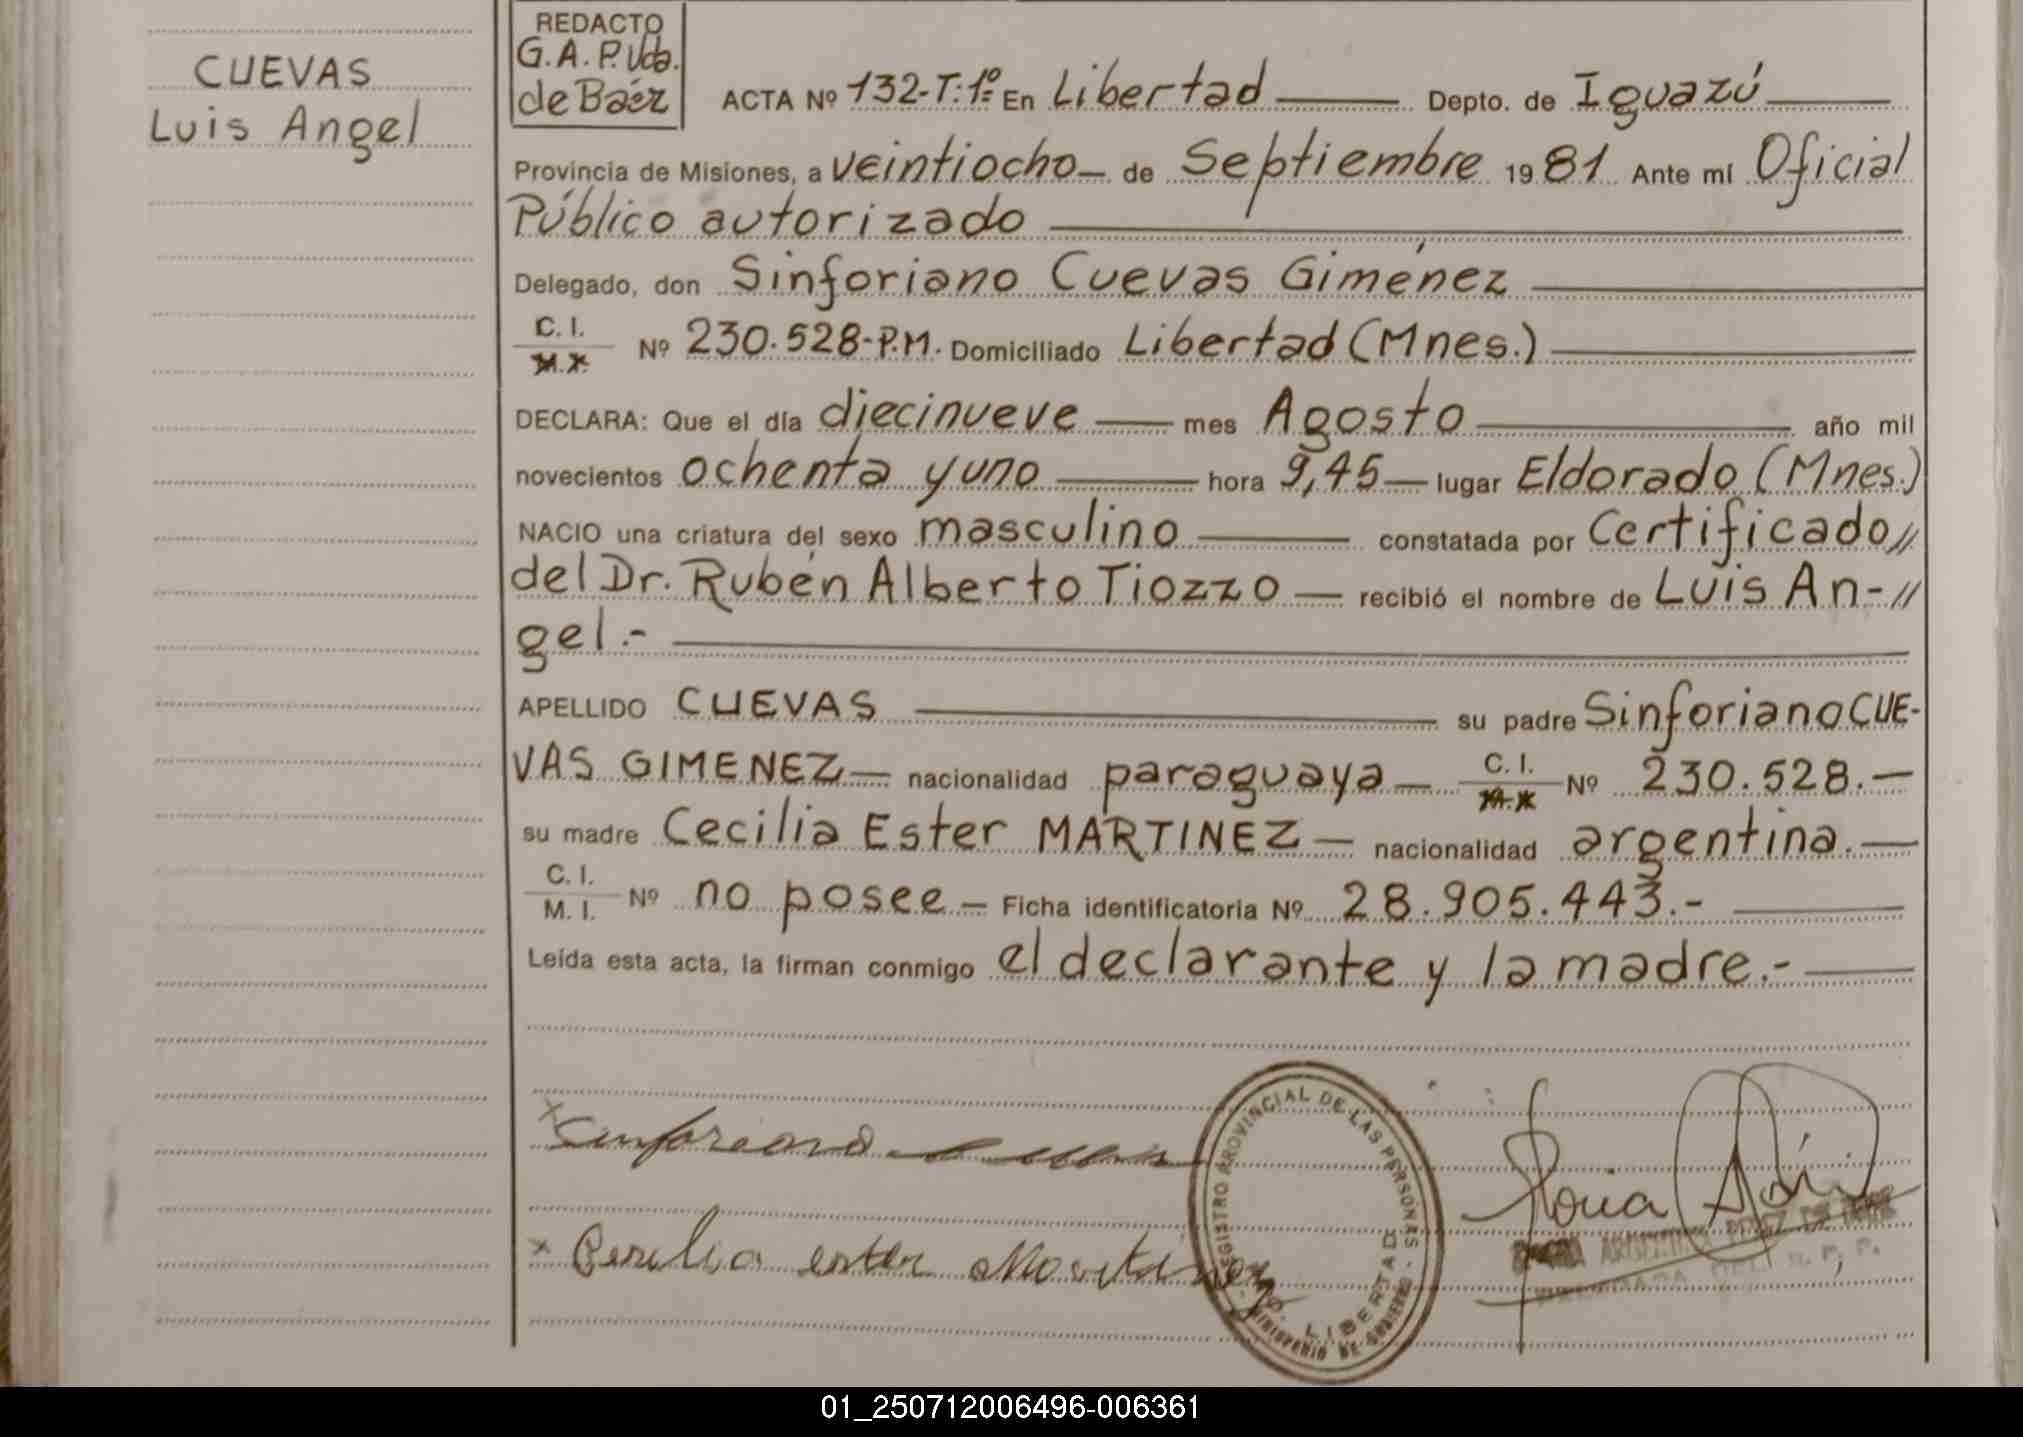 CUEVAS
Luis Angel
REDACTO
G.A.P. Vda.
de Báez
ACTA Nº 132-T:1º En Libertad Depto. de Iguazú
Provincia de Misiones, a veintiocho de Septiembre 1981 Ante mí Oficial
Público autorizado
Delegado, don Sinforiano Cuevas Giménez
C. I.
M.I. Nº 230.528-P.M. Domiciliado Libertad (Mnes.)
DECLARA: Que el día diecinueve mes Agosto año mil
novecientos ochenta y uno hora 9,45 lugar Eldorado (Mnes.)
NACIO una criatura del sexo masculino constatada por Certificado //
del Dr. Rubén Alberto Tiozzo recibió el nombre de Luis An- //
gel.-
APELLIDO CUEVAS su padre Sinforiano CUE-
VAS GIMENEZ nacionalidad paraguaya C. I.
M.I. Nº 230.528.-
su madre Cecilia Ester MARTINEZ nacionalidad argentina.
C. I.
M. I. Nº no posee Ficha identificatoria Nº 28.905.443.-
Leída esta acta, la firman conmigo el declarante y la madre.-
x Sinforiano
x Cecilia ester Martinez
REGISTRO PROVINCIAL DE LAS PERSONAS
LIBERTAD
MINISTERIO DE GOBIERNO
01_250712006496-006361